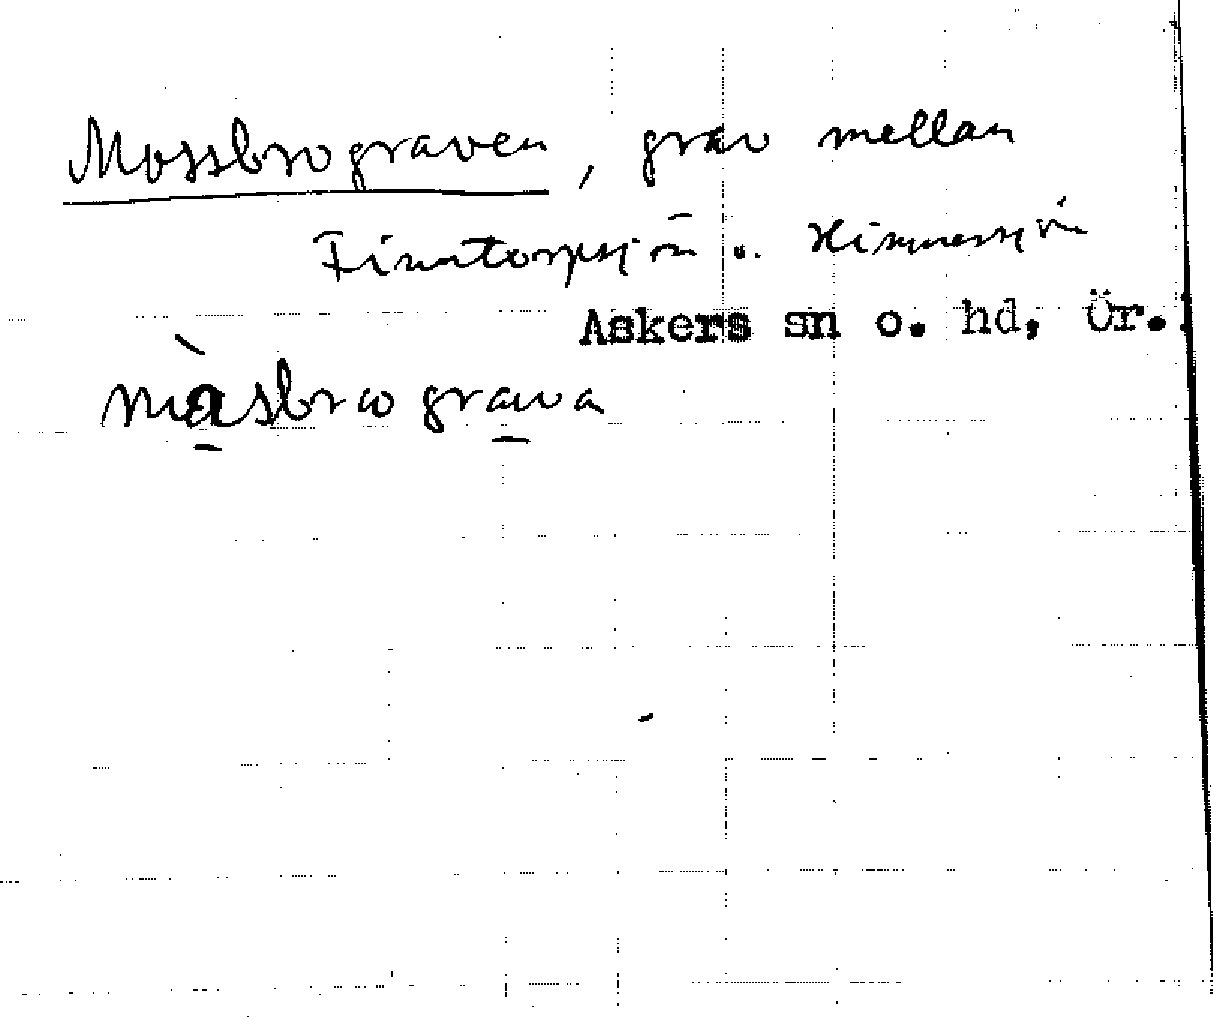 Mossbrograven, grav mellan
Finntorpsjön o. Himmersjön
Askers sn o. hd, Ör.
màsbrωgrava